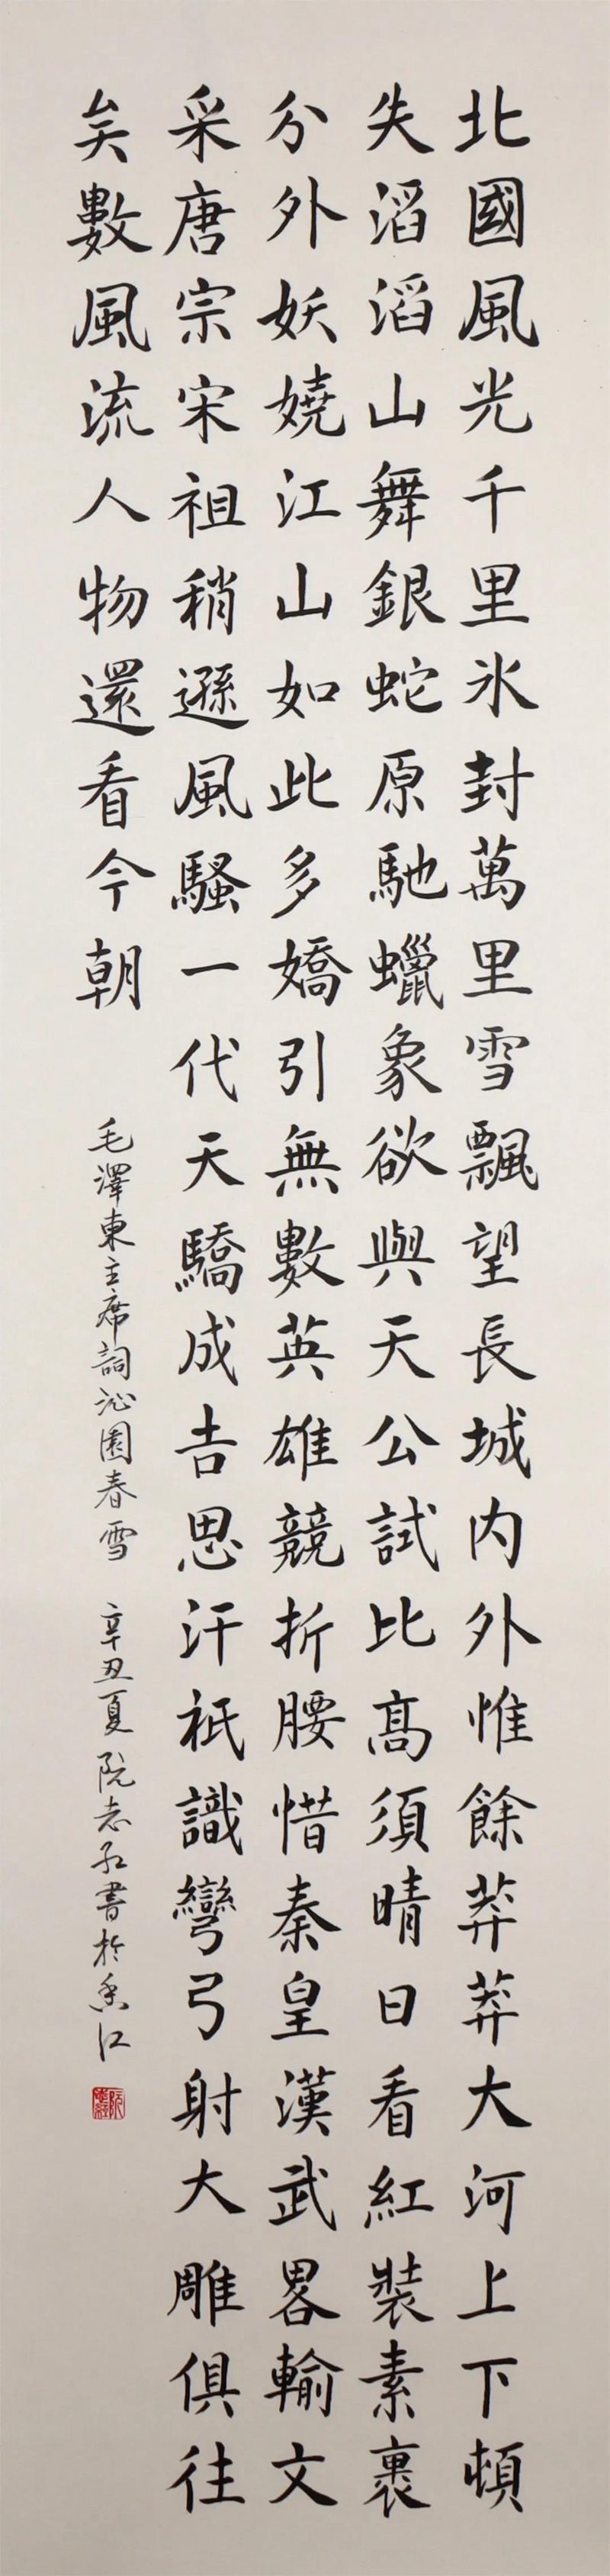 北國風光千里氷封萬里雪飄望長城内外惟餘莽莽大河上下頓
失滔滔山舞銀蛇原馳蠟象欲與天公試比髙須晴日看紅裝素裹
分外妖嬈江山如此多嬌引無數英雄競折腰惜秦皇漢武畧輸文
采唐宗宋祖稍遜風騷一代天驕成吉思汗祇識彎弓射大雕俱往
矣數風流人物還看今朝
毛澤東主席詞沁園春雪 辛丑夏阮志紅書於香江